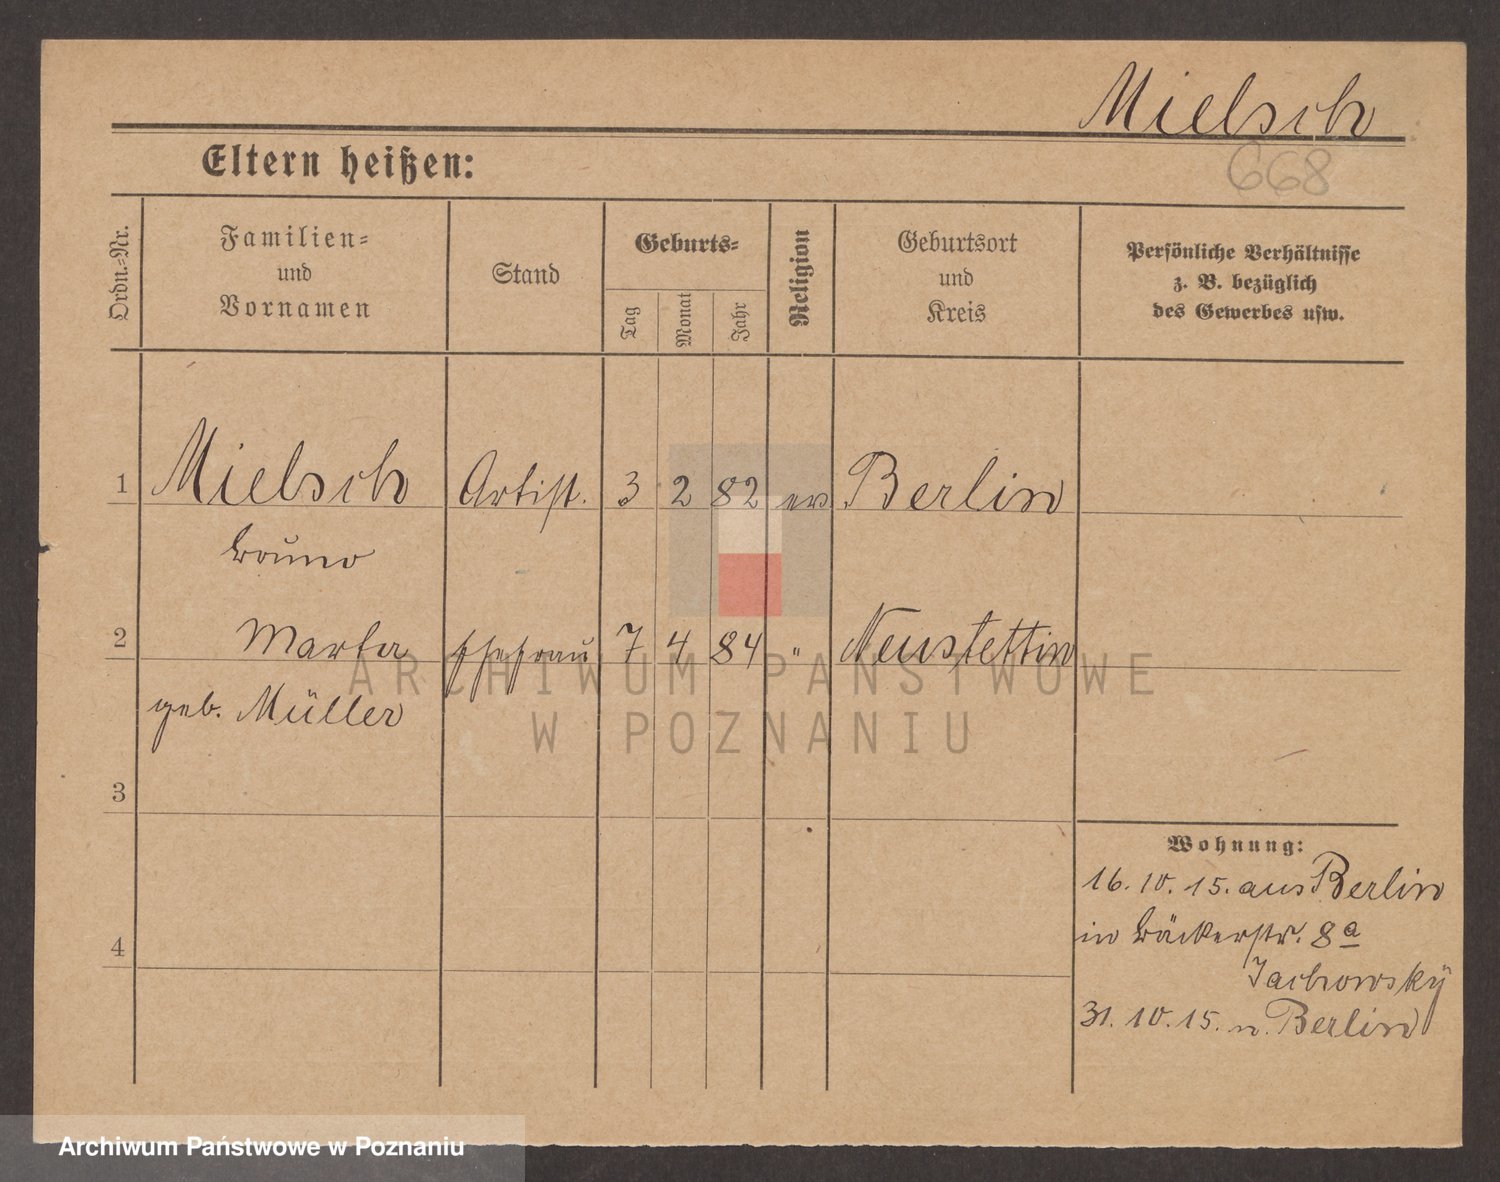 Mielsch
668
Eltern heißen:
Ordn.-Nr.
Familien-
und
Vornamen
Stand
Geburts-
Tag
Monat
Jahr
Religion
Geburtsort
und
Kreis
Persönliche Verhältnisse
z. B. bezüglich
des Gewerbes usw.
1 Mielsch Artist. 3 2 82 ev Berlin
Bruno
2 Marta Ehefrau 7 4 84 " Neustettin
geb. Müller
3
4
Wohnung:
16. 10. 15. aus Berlin
in Bäckerstr. 8a
Jachowsky
31. 10. 15. n. Berlin
ARCHIWUM PAŃSTWOWE
W POZNANIU
Archiwum Państwowe w Poznaniu